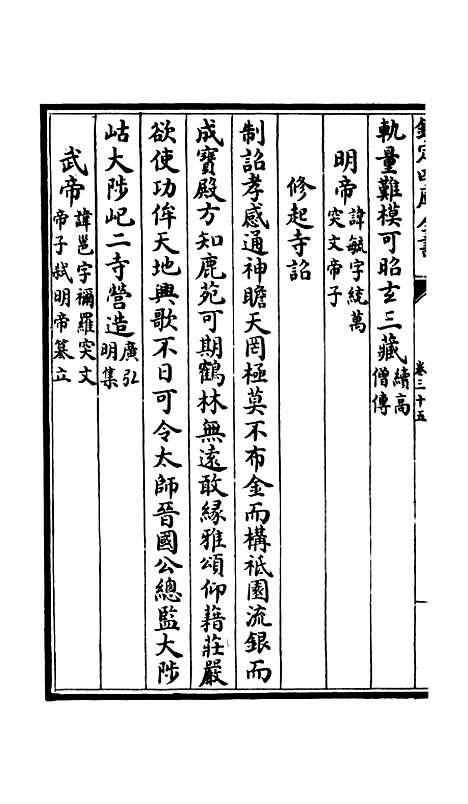 欽定四庫全書
卷三十五
軌量難模可昭玄三藏續高僧傳
明帝諱毓字統萬突文帝子
修起寺詔
制詔孝感通神瞻天罔極莫不布金而構祇園流銀而
成寶殿方知鹿苑可期鶴林無遠敢緣雅頌仰藉莊嚴
欲使功侔天地興歌不日可令太師晉國公總監大陟
岵大陟屺二寺營造廣弘明集
武帝諱邕字禰羅突文帝子弑明帝纂立